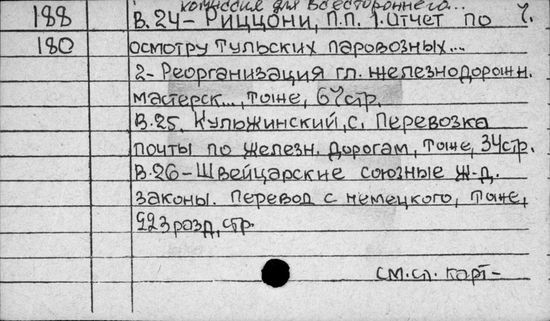 комиссия для всестороннего...
188 В.24- Риццони, П.П. 1.Отчет по 7.
180 осмотру Тульских паровозных...
2-Реорганизация гл. железнодорожн.
мастерск..., тоже, 67стр.
В.25. Кульжинский, С. Перевозка
почты по железн. дорогам, тоже, 34стр.
В.26-Швейцарские союзные ж-д.
законы. Перевод с немецкого, тоже,
223 разд, стр.
см.сл. карт-